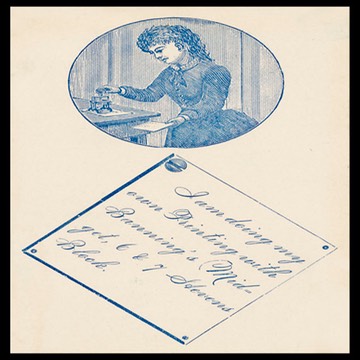 I am doing my
own Printing with
Banning's Mid-
get, 6 & 7 Stevens
Block.